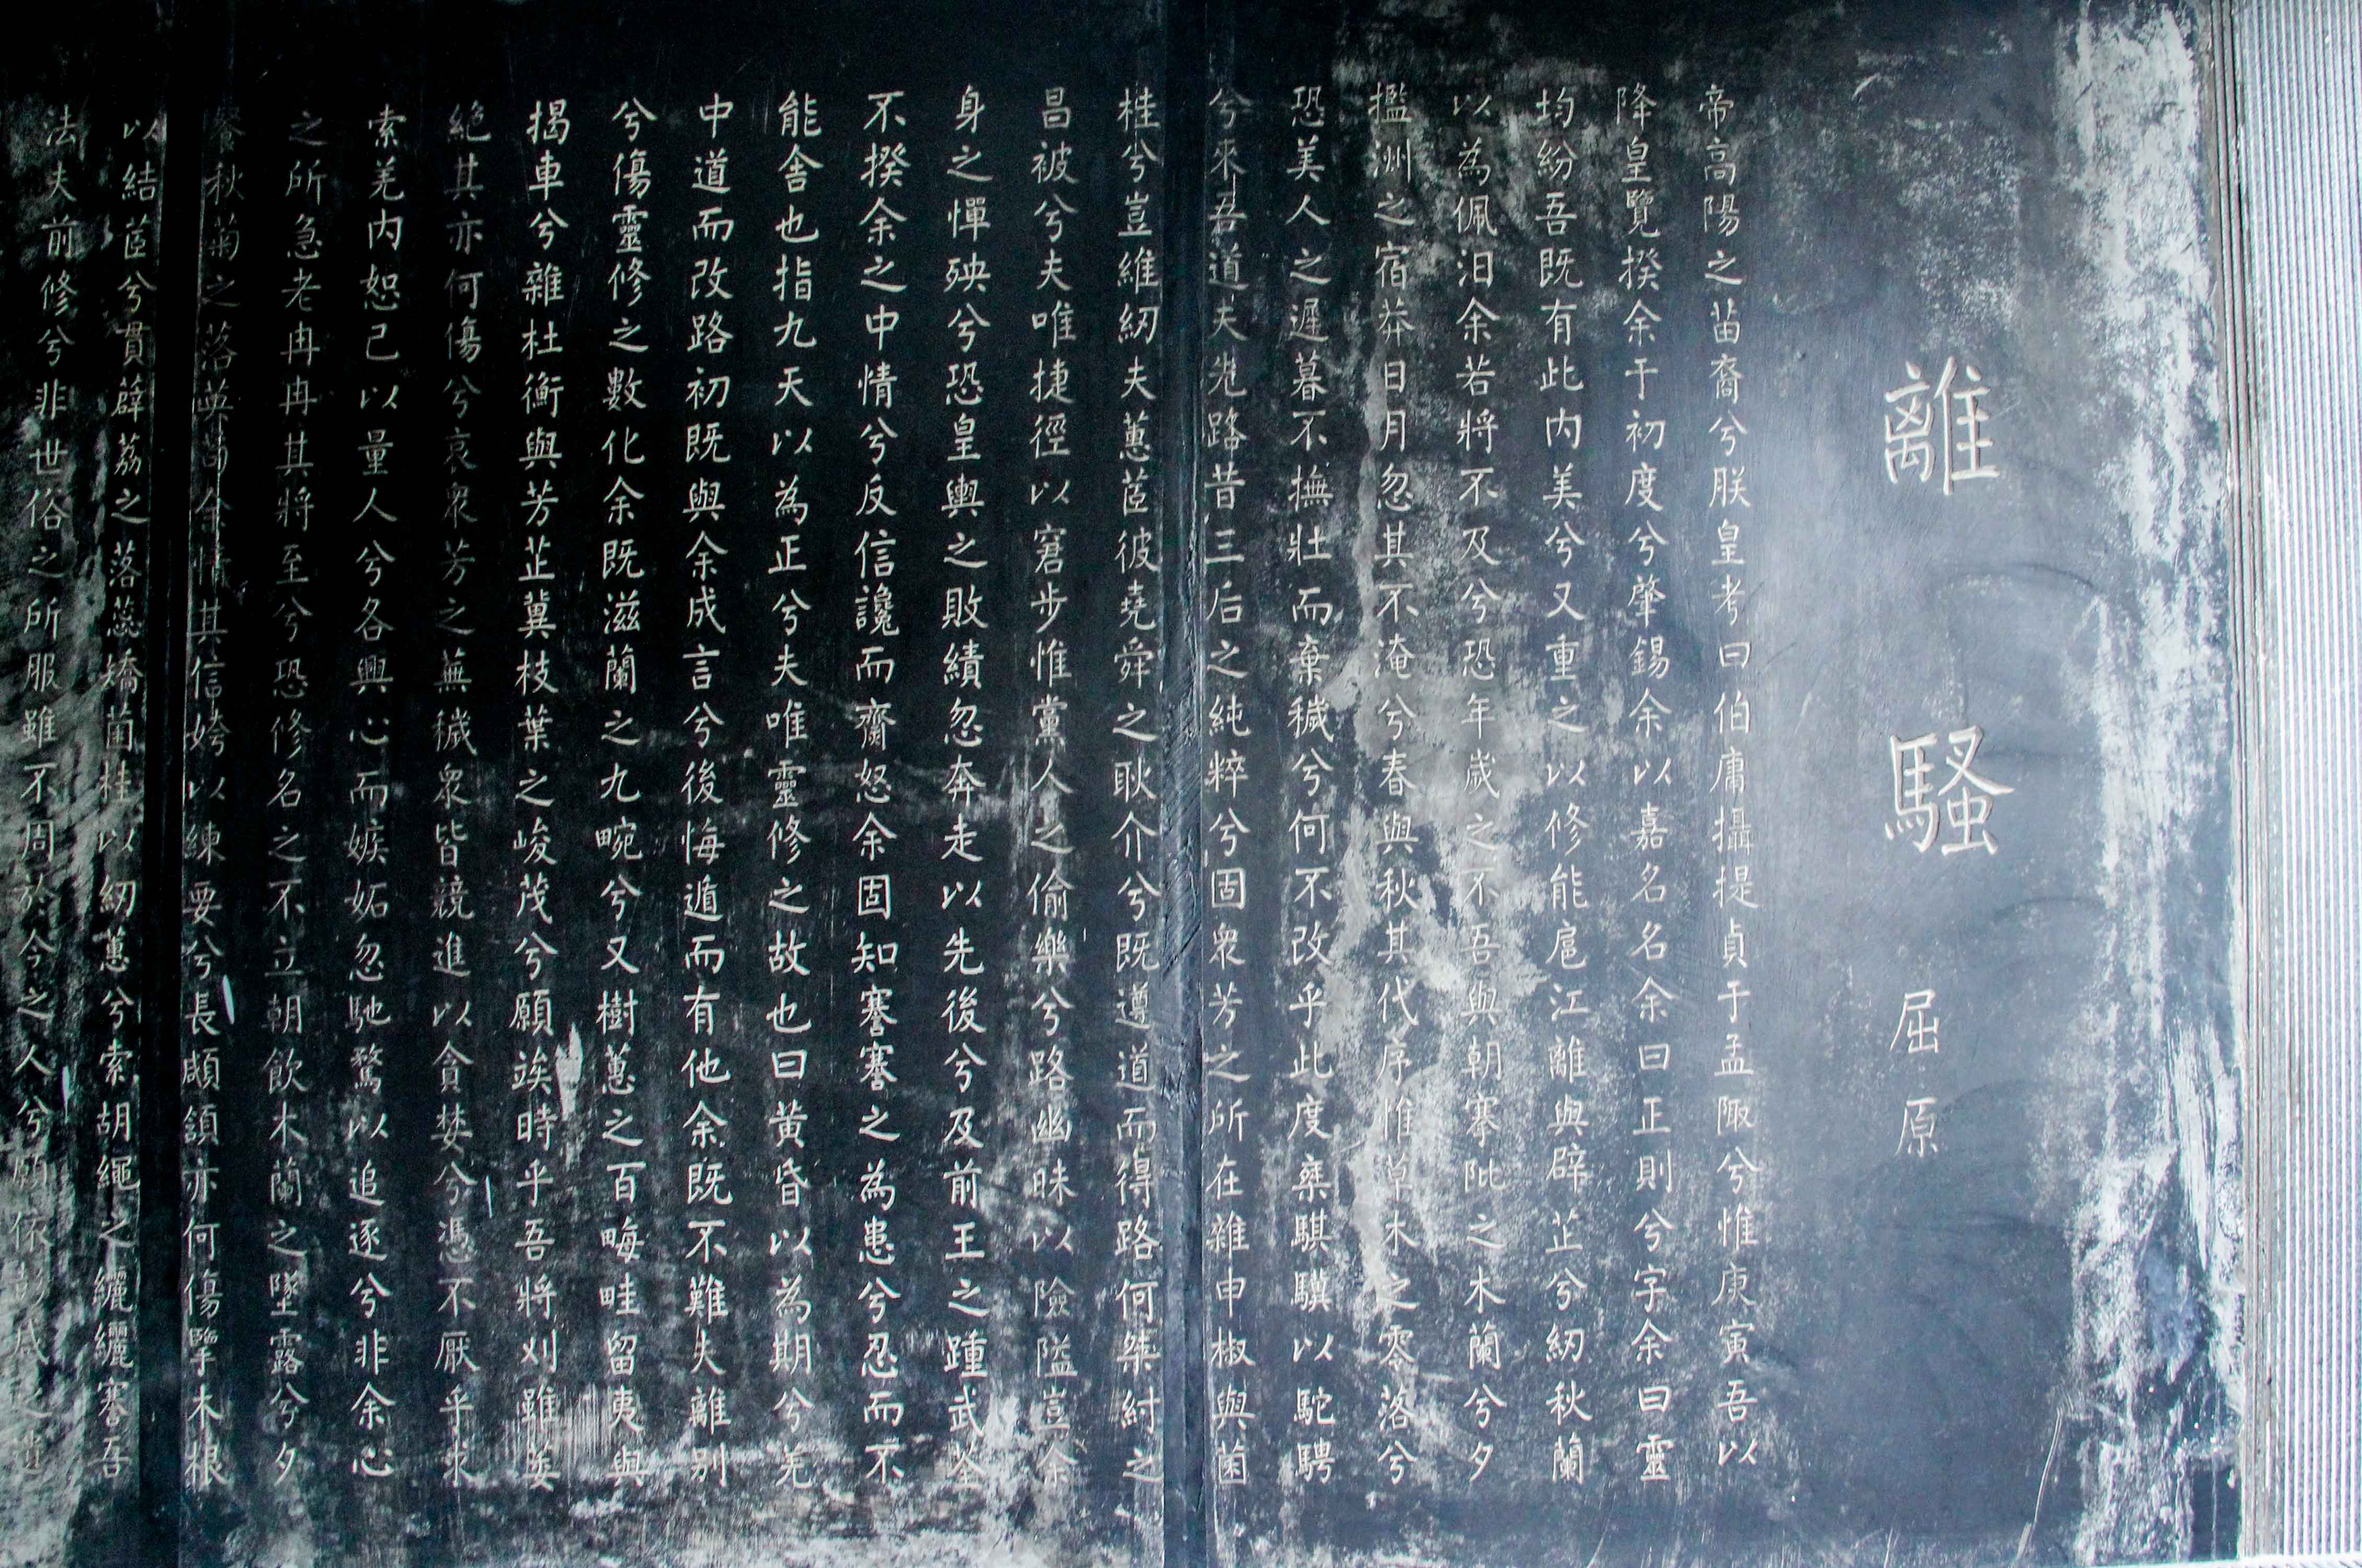 離騷
屈原
帝高陽之苗裔兮朕皇考曰伯庸攝提貞于孟陬兮惟庚寅吾以
降皇覽揆余于初度兮肇錫余以嘉名名余曰正則兮字余曰靈
均紛吾既有此内美兮又重之以修能扈江離與辟芷兮紉秋蘭
以為佩汩余若將不及兮恐年歲之不吾與朝搴阰之木蘭兮夕
擥洲之宿莽日月忽其不淹兮春與秋其代序惟草木之零落兮
恐美人之遲暮不撫壯而棄穢兮何不改乎此度椉騏驥以駝騁
兮來吾道夫先路昔三后之純粹兮固衆芳之所在雜申椒與菌
桂兮豈維紉夫蕙茝彼堯舜之耿介兮既遵道而得路何桀紂之
昌被兮夫唯捷徑以窘步惟黨人之偷樂兮路幽昧以險隘豈余
身之憚殃兮恐皇輿之敗績忽奔走以先後兮及前王之踵武荃
不揆余之中情兮反信讒而齌怒余固知謇謇之為患兮忍而不
能舍也指九天以為正兮夫唯靈修之故也曰黄昏以為期兮羌
中道而改路初既與余成言兮後悔遁而有他余既不難夫離别
兮傷靈修之數化余既滋蘭之九畹兮又樹蕙之百畮畦留夷與
揭車兮雜杜衡與芳芷冀枝葉之峻茂兮願竢時乎吾將刈雖萎
絶其亦何傷兮哀衆芳之蕪穢衆皆競進以貪婪兮憑不厭乎求
索羌内恕己以量人兮各興心而嫉妬忽馳騖以追逐兮非余心
之所急老冉冉其將至兮恐修名之不立朝飲木蘭之墜露兮夕
餐秋菊之落英苟余情其信姱以練要兮長顑頷亦何傷擥木根
以結茝兮貫薜荔之落蕊矯菌桂以紉蕙兮索胡繩之纚纚謇吾
法夫前修兮非世俗之所服雖不周於今之人兮願依彭咸之遺